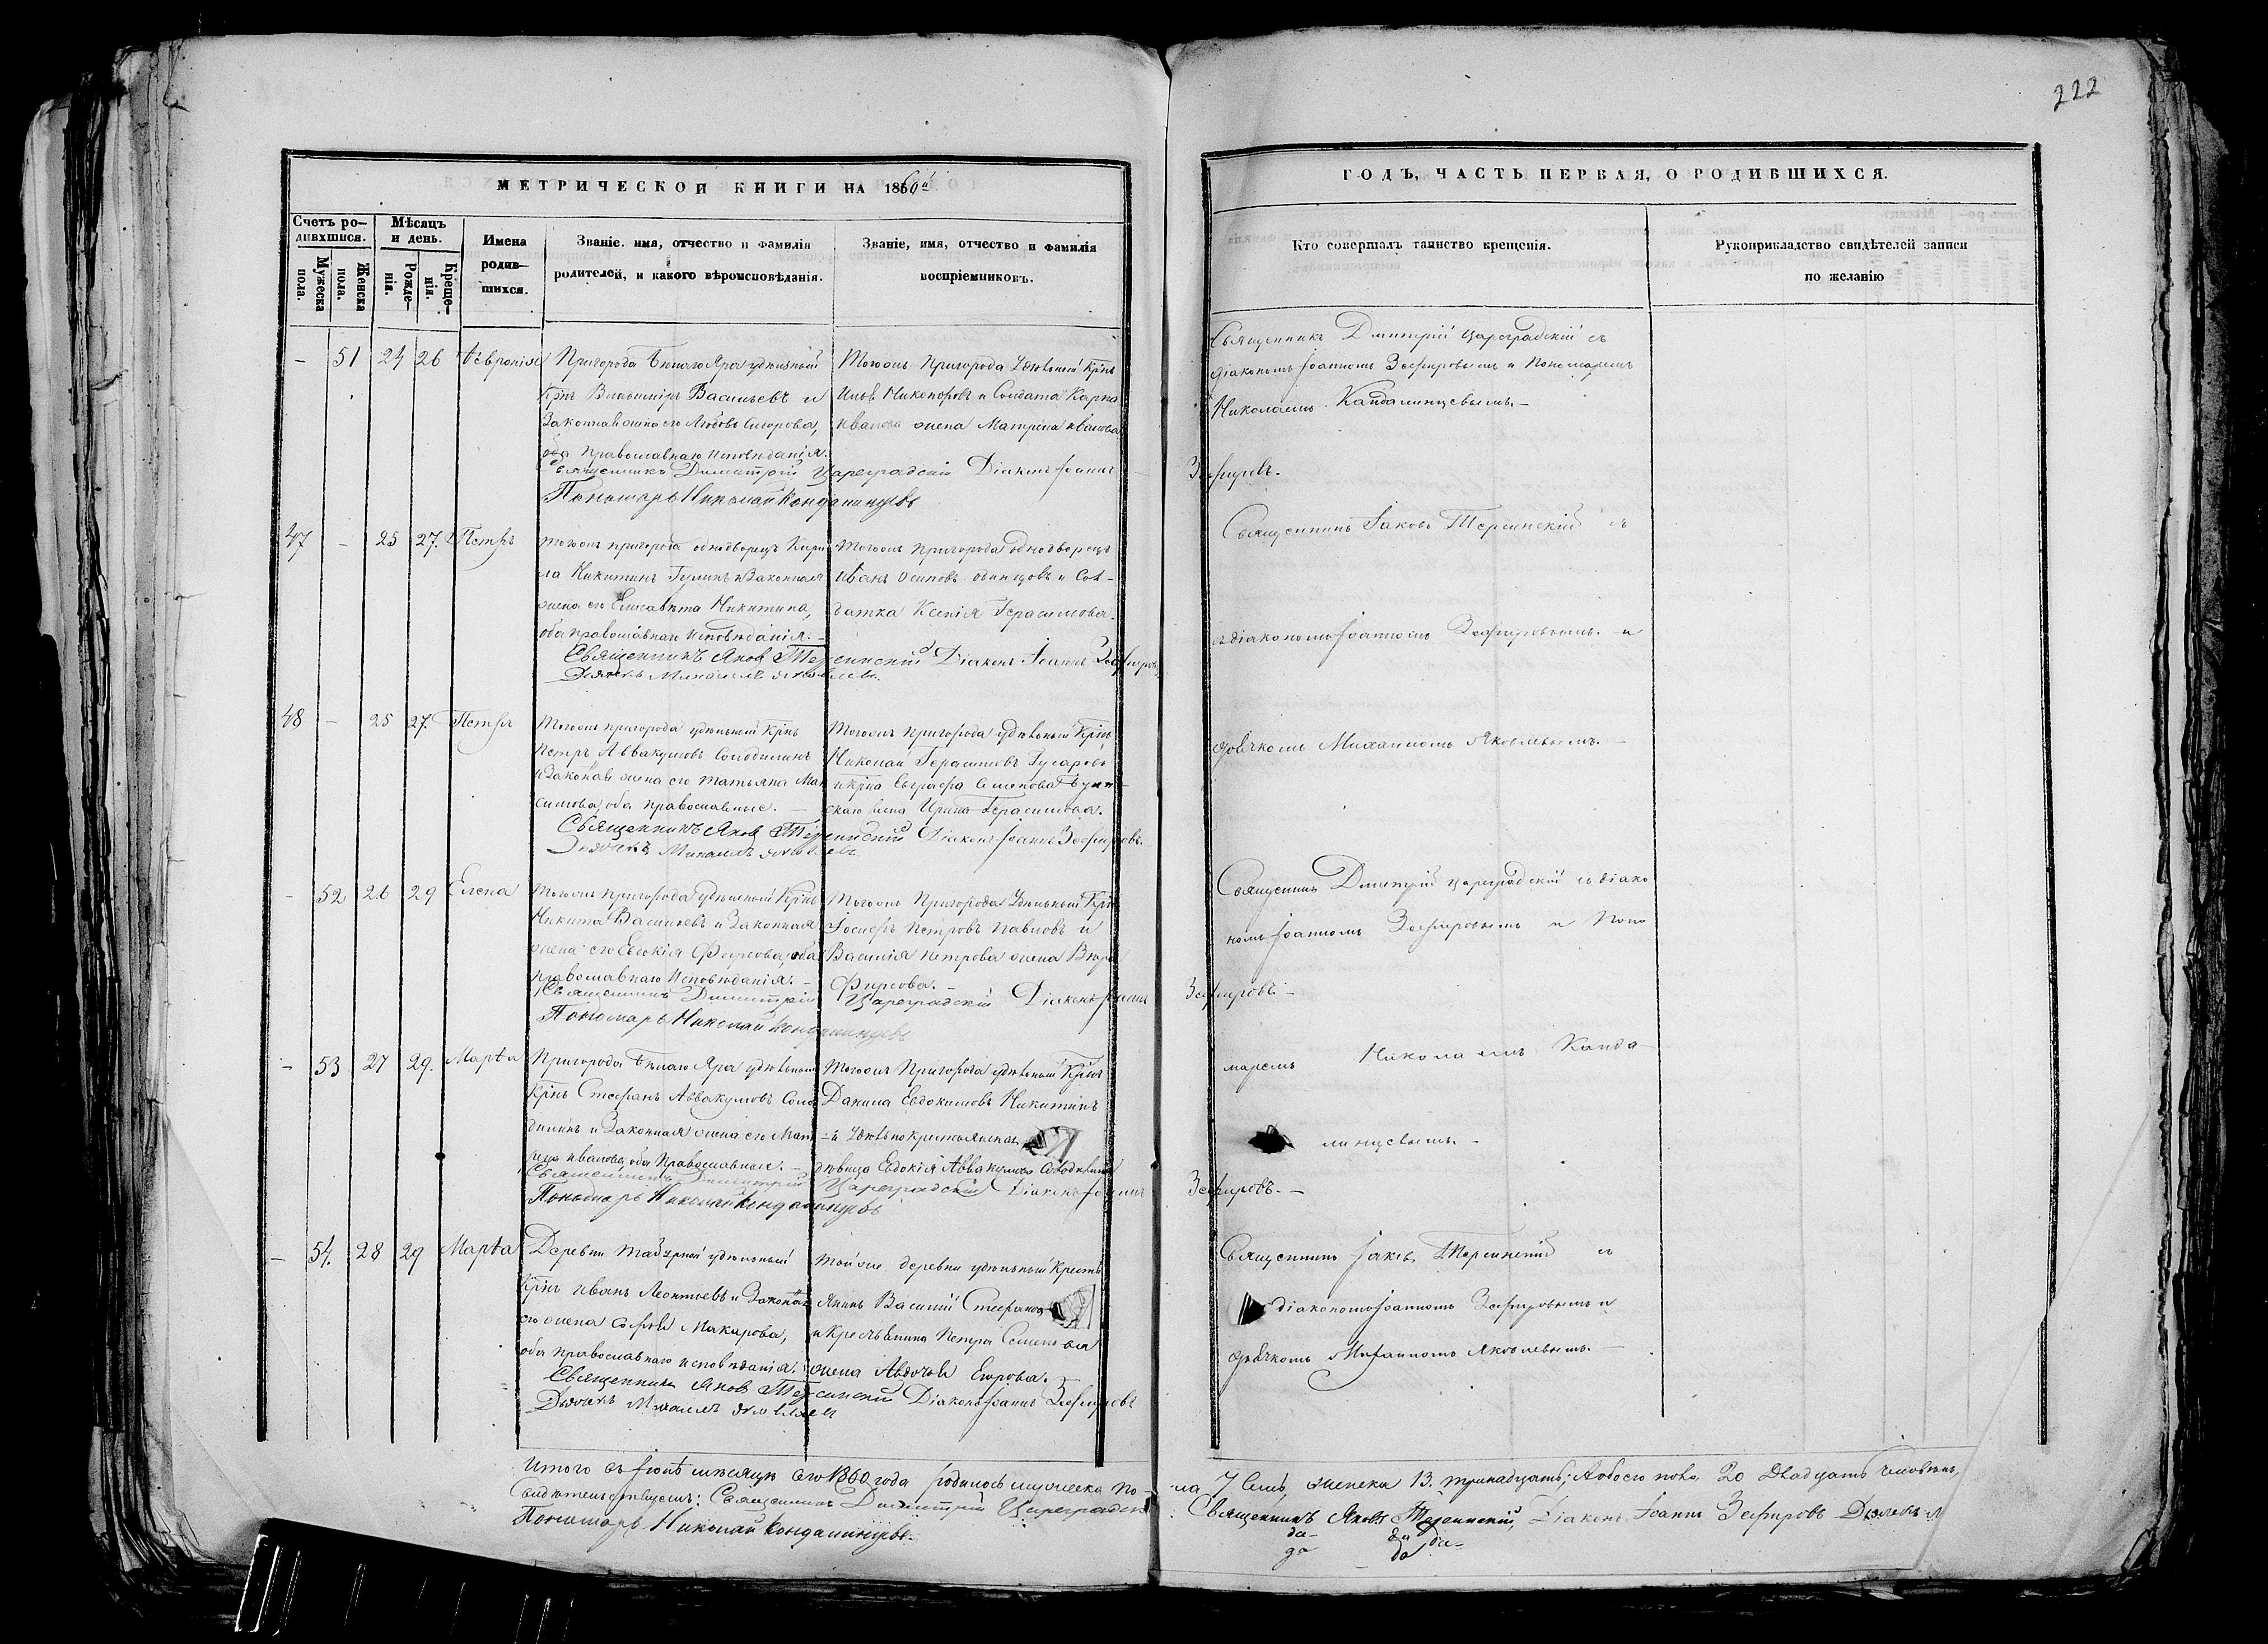 222
МЕТРИЧЕСКОЙ КНИГИ НА 1860й
ГОДЪ, ЧАСТЬ ПЕРВАЯ, О РОДИВШИХСЯ.
Счетъ ро-
дившихся.
Мужеска
пола.
Женска
пола.
Мѣсяцъ
и день.
Рожде-
нія.
Креще-
нія.
Имена
родив-
шихся.
Званіе, имя, отчество и фамилія
родителей, и какого вѣроисповѣданія.
Званіе, имя, отчество и фамилія
воспріемниковъ.
Кто совершалъ таинство крещенія.
Рукоприкладство свидѣтелей записи
по желанію
– 51 24 26 Ѳевронія
Пригорода Бѣлаго Яра удѣльный
Крнъ Васильевъ и
Законная жена его Любовь
оба православнаго исповѣданія.
Тогожъ Пригорода Удѣльный Крнъ
Никопоровъ и Солдата Карпа
Иванова жена Матрена Иванова
Священникъ Дмитрій Цареградскій съ
діакономъ Іоанномъ Зефировымъ и Пономаремъ
Николаемъ Кандалинцевымъ. –
Священникъ Димитрій Цареградскій Діаконъ Іоаннъ Зефировъ. –
Пономарь Николай Кондалинцевъ
47 – 25 27. Петръ
Тогожъ пригорода однодворецъ Кири
ла Никитинъ и Законная
жена его Елисавета Никитина,
оба православнаго исповѣданія. –
Тогожъ Пригорода Однодворецъ
Иванъ Осиповъ Одинцовъ и Сол-
датка Ксенія Герасимова.
Священникъ Іаковъ Терсинскій съ
діакономъ Іоанномъ Зефировымъ. – и
Священникъ Яковъ Терсинскій Діаконъ Іоаннъ Зефировъ
Дьячекъ Михаилъ Яковлевъ.
48 – 25 27. Петръ
Тогожъ пригорода удѣльный Крнъ
Петръ Аввакумовъ Солодилинъ
и Законая жена его Татьяна Мак
симова, оба православные. –
Тогожъ пригорода удѣльный Крнъ
Николай Герасимовъ Гусаровъ
и крна Евграфа Семенова
жена Ирина Герасимова.
дьячкомъ Михаиломъ Яковлевымъ. –
Священникъ Яковъ Терсинскій Діаконъ Іоаннъ Зефировъ.
Дьячекъ Михаилъ Яковлевъ.
– 52 26 29 Елена
Тогожъ пригорода удѣльный Крнъ
Никита Васильевъ и Законная
жена его Евдокія Фирсова, оба
православнаго исповѣданія. –
Тогожъ Пригорода Удѣльный Крнъ
Іосифъ Петровъ Павловъ и
Василія Петрова жена Вѣра
Фирсова. –
Священникъ Дмитрій Цареградскій съ діако
номъ Іоанномъ Зефировымъ и Поно
Священникъ Димитрій Цареградскій Діаконъ Іоаннъ Зефировъ. –
Пономарь Николай Кондалинцевъ
– 53 27 29. Марѳа
Пригорода Бѣлаго Яра удѣльный
Крнъ Стефанъ Аввакумовъ Соло
дилинъ и Законная жена его
Иванова, оба Православные. –
Тогожъ Пригорода удѣльный Крнъ
Данила Евдокимовъ Никитинъ
и Удѣльно Крестьянская
дѣвица Евдокія Аввакумова Солодилина
маремъ Николаемъ Канда
линцевымъ. –
Священникъ Димитрій Цареградскій Діаконъ Іоаннъ Зефировъ. –
Пономарь Николай Кондалинцевъ
– 54. 28 29 Марѳа
Деревни удѣльный
Крнъ Иванъ Леонтьевъ и Законная
его жена Софья Макарова,
оба православнаго исповѣданія.
Той же деревни удѣльный Кресть
янинъ Василій Стефановъ
и Крестьянина Петра Семенова
жена Авдотья Егорова.
Священникъ Іаковъ Терсинскій съ
діакономъ Іоанномъ Зефировымъ и
дьячкомъ Михаиломъ Яковлевымъ. –
Священникъ Яковъ Терсинскій Діаконъ Іоаннъ Зефировъ
Дьячекъ Михаилъ Яковлевъ
Итого въ Іюнѣ мѣсяцѣ сего 1860 года родилось мужеска по-ла 7 семь, женска 13. тринадцать, Аобоего пола 20 двадцать человѣкъ,
Свидѣтельствуемъ: Священникъ Димитрій Цареградскій Священникъ Яковъ Терсинскій, Діаконъ Іоаннъ Зефировъ Дьячекъ М
Пономарь Николай Кондалинцевъ.